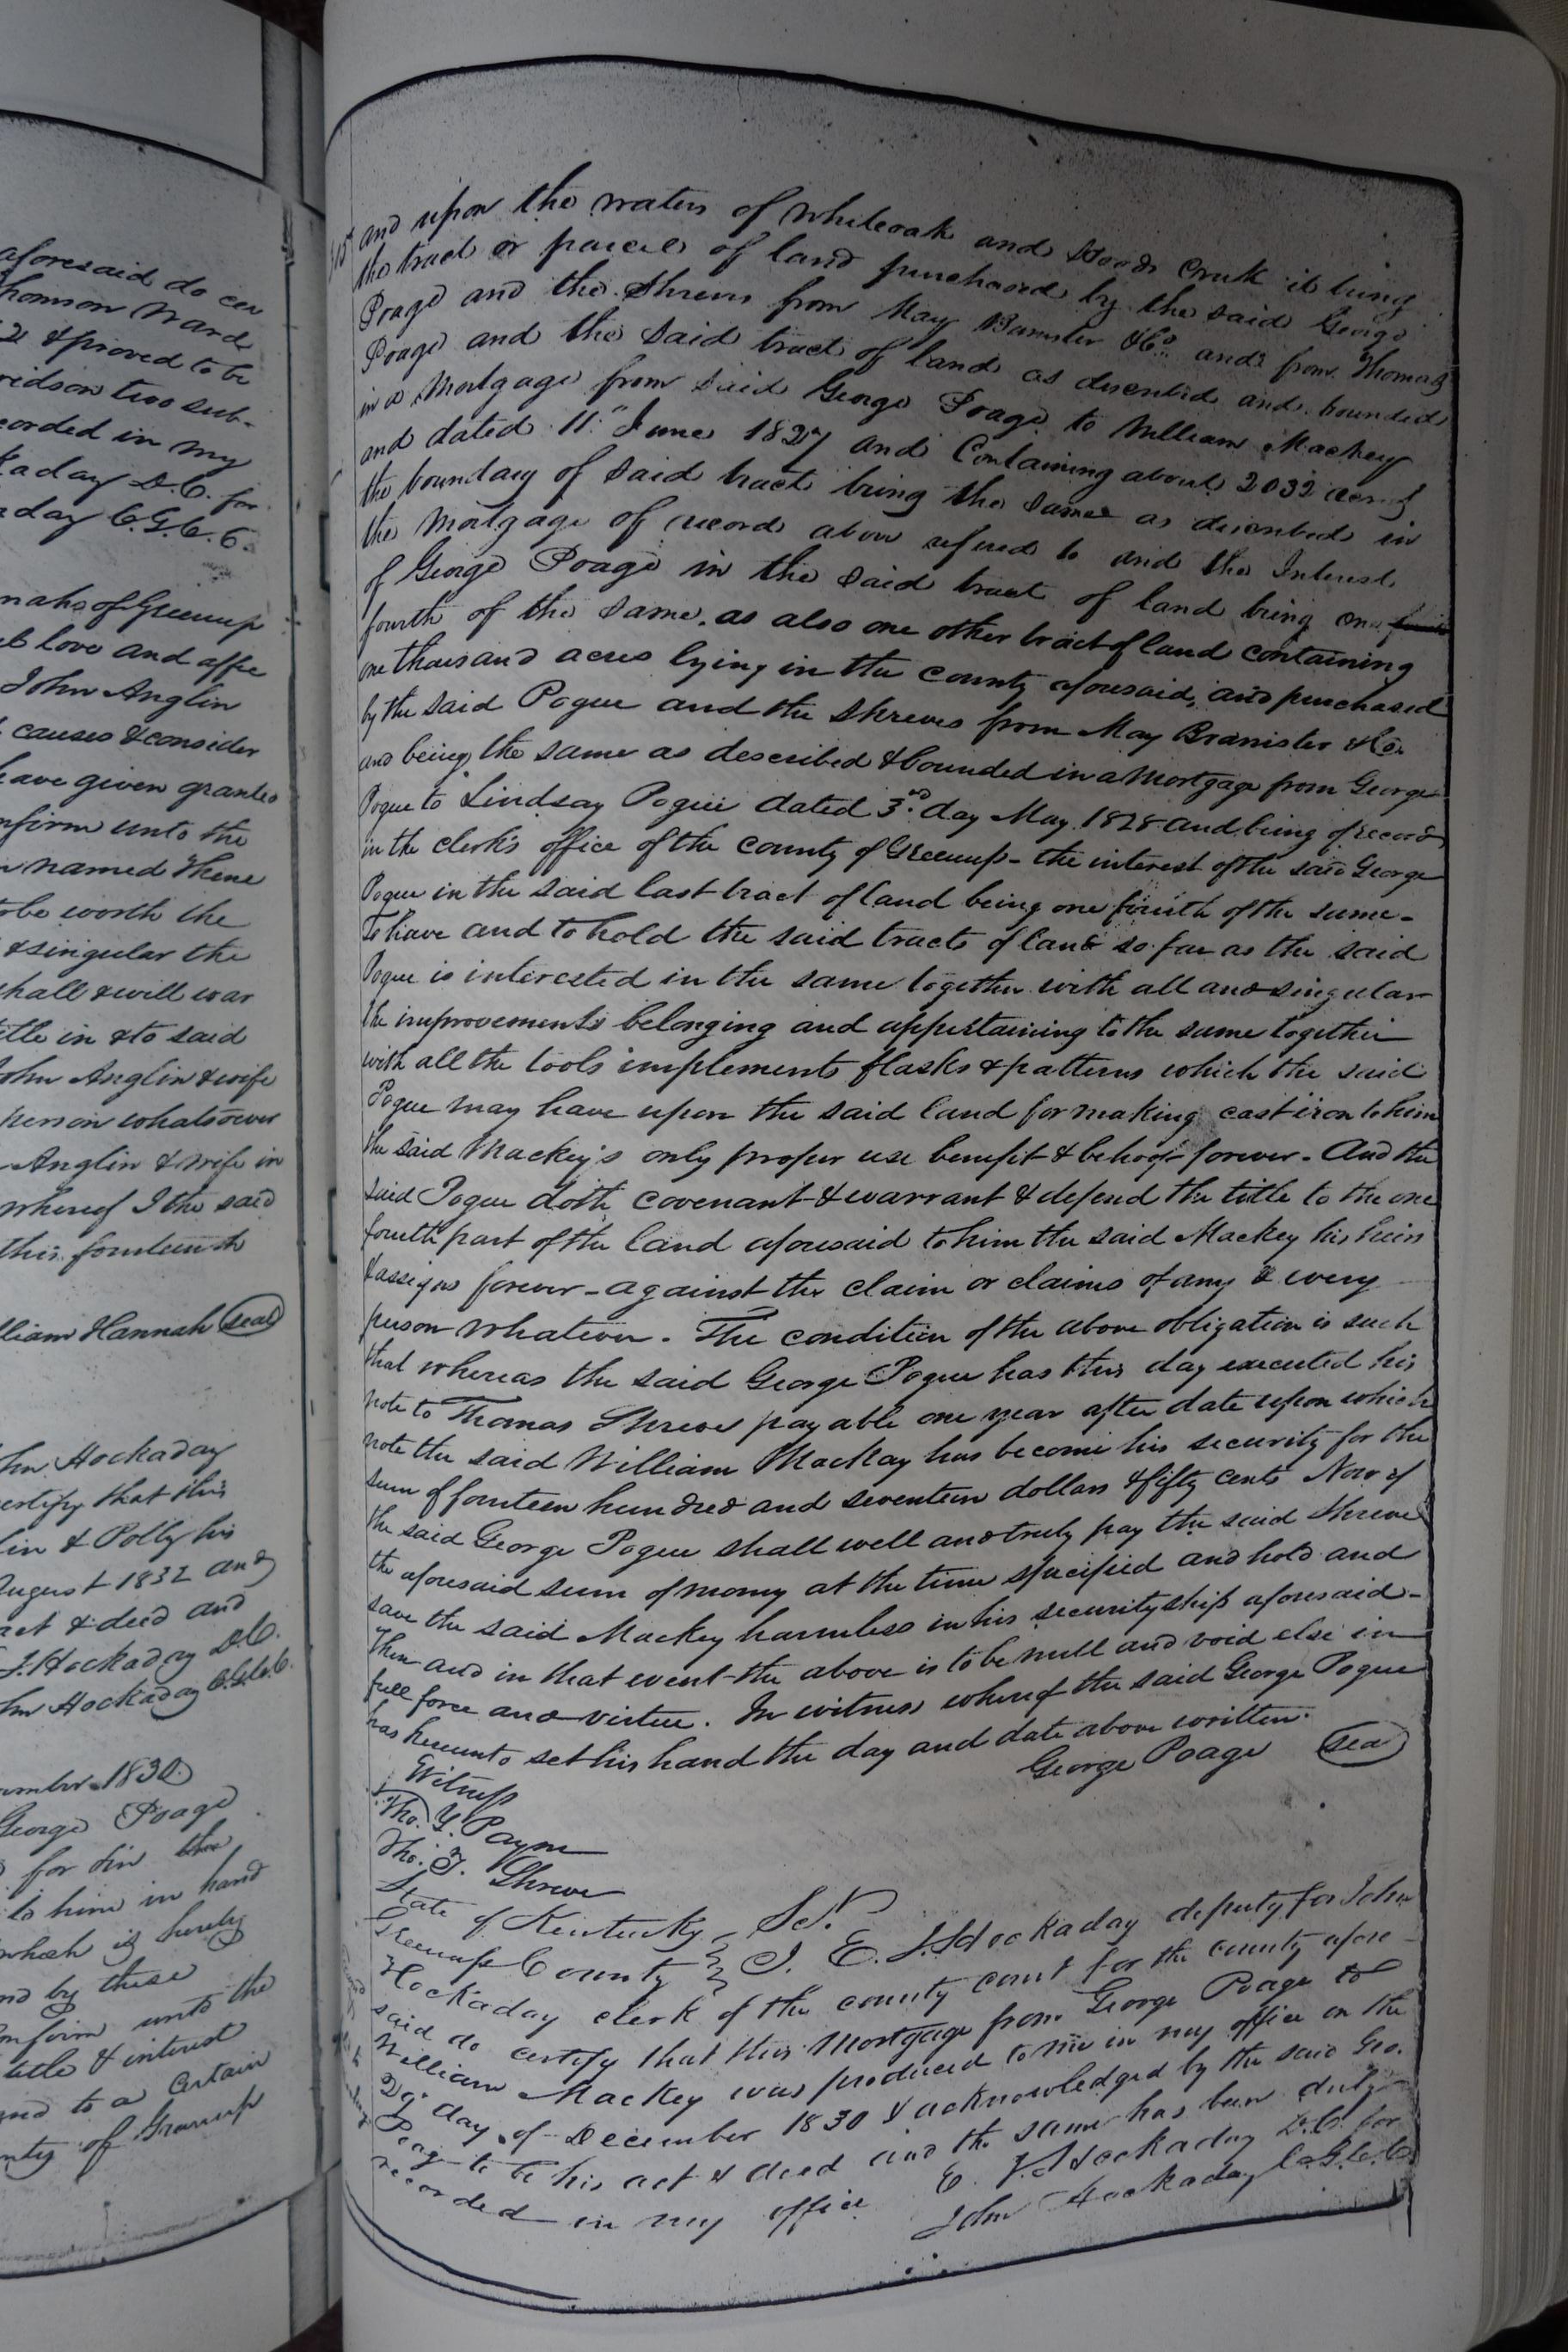 aforesaid do cer
Thomson Ward
& proved to be
vidson two sub-
corded in my
kaday D.C. for
aday C.G.C.C.
nahs of Greenup
love and affe
John Anglin
causes & consider
have given granted
nfirm unto the
named Thene
to be worth the
& singular the
shall & will war
title in & to said
John Anglin & wife
person whatsoever
Anglin & wife in
whereof I the said
this fourteenth
lliam Hannah (seal)
hn Hockaday
certify that this
lin & Polly his
August 1832 and
act & deed and
J. Hockaday D.C.
hn Hockaday C.G.C.C.
ember 1830
George Poage
for & in the
to him in hand
which is hereby
nd by these
onfirm unto the
title & interest
and to a certain
nty of Greenup
and upon the waters of Whiteoak and Hoods Creek it being
the tract or parcel of land purchased by the said George
Poage and the Shreves from May Banister & Co. and from Thomas
Poage and the said tract of land as described and bounded
in a Mortgage from said George Poage to William Mackey
and dated 11th June 1827 and Containing about 2032 acres
the boundary of said tract being the same as described in
the Mortgage of record above refered to and the Interest
of George Poage in the said tract of land being one
fourth of the same. as also one other tract of land containing
one thousand acres lying in the county aforesaid, and purchased
by the said Pogue and the Shreves from May Branister & Co.
and being the same as described & bounded in a mortgage from George
Pogue to Lindsay Pogue dated 3rd day May 1828 and being of record
in the clerks office of the county of Greenup - the interest of the said George
Pogue in the said last tract of land being one fourth of the same -
To have and to hold the said tracts of land so far as the said
Pogue is interested in the same together with all and singular
the improvements belonging and appertaining to the same together
with all the tools implements flasks & patterns which the said
Pogue may have upon the said land for making cast iron to him
the said Mackey's only proper use benefit & behoof forever - And the
said Pogue doth covenant & warrant & defend the title to the one
fourth part of the land aforesaid to him the said Mackey his heirs
& assigns forever - against the claim or claims of any & every
person whatever. The condition of the above obligation is such
that whereas the said George Pogue has this day executed his
note to Thomas Shreve payable one year after date upon which
note the said William MacKay has become his security for the
sum of fourteen hundred and seventeen dollars & fifty cents Now if
the said George Pogue shall well and truly pay the said Shreve
the aforesaid sum of money at the time specified and hold and
save the said Mackey harmless in his securityship aforesaid -
Then and in that event the above is to be null and void else in
full force and virtue. In witness whereof the said George Pogue
has hereunto set his hand the day and date above written.
George Poage (Seal)
Witness
Tho. Y. Payne
Tho. T. Shreve
State of Kentucky
Greenup County } Sct. I. E. J. Hockaday deputy for John
Hockaday clerk of the county court for the county afore-
said do certify that this Mortgage from George Poage to
William Mackey was produced to me in my office on the
day of December 1830 & acknowledged by the said Geo.
Poage to be his act & deed and the same has been duly
recorded in my office E. J. Hockaday D.C. for
John Hockaday C.G.C.C.